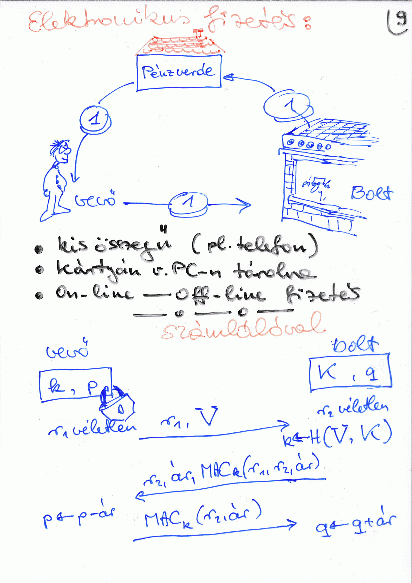 Elektronikus fizetés:
9
Pénzverde
1
1
vevő
1
Bolt
• kis összegű (pl. telefon)
• kártyán v. PC-n tárolva
• On-line — Off-line fizetés
számlálóval
vevő
bolt
k, p
K, q
r₁ véletlen
r₁, V
r₂ véletlen
k ← H(V, K)
r₂, ár, MACₖ(r₁, r₂, ár)
p ← p-ár
MACₖ(r₂, ár)
q ← q+ár